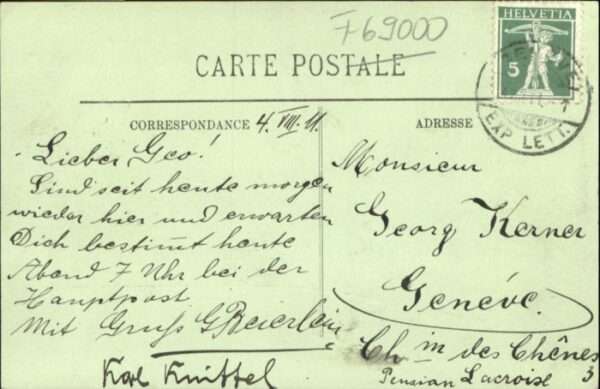 F69000
HELVETIA
5
CARTE POSTALE
EXP. LETT.
CORRESPONDANCE 4. VIII. 11.
ADRESSE
Lieber Geo!
Sind seit heute morgen
wieder hier und erwarten
Dich bestimmt heute
Abend 7 Uhr bei der
Hauptpost.
Mit Gruss G Beierlein
Karl Knittel
Monsieur
Georg Kerner
Genéve.
Ch in des Chênes
3
Pension Lacroise